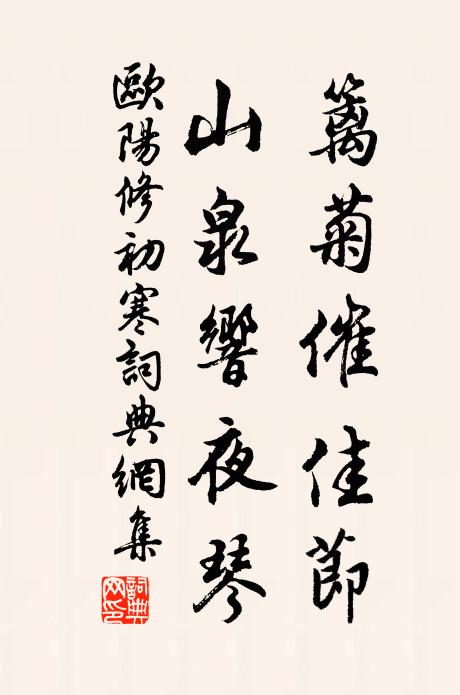 籬菊催佳節
山泉響夜琴
歐陽修初寒詞典網集
詞典网印